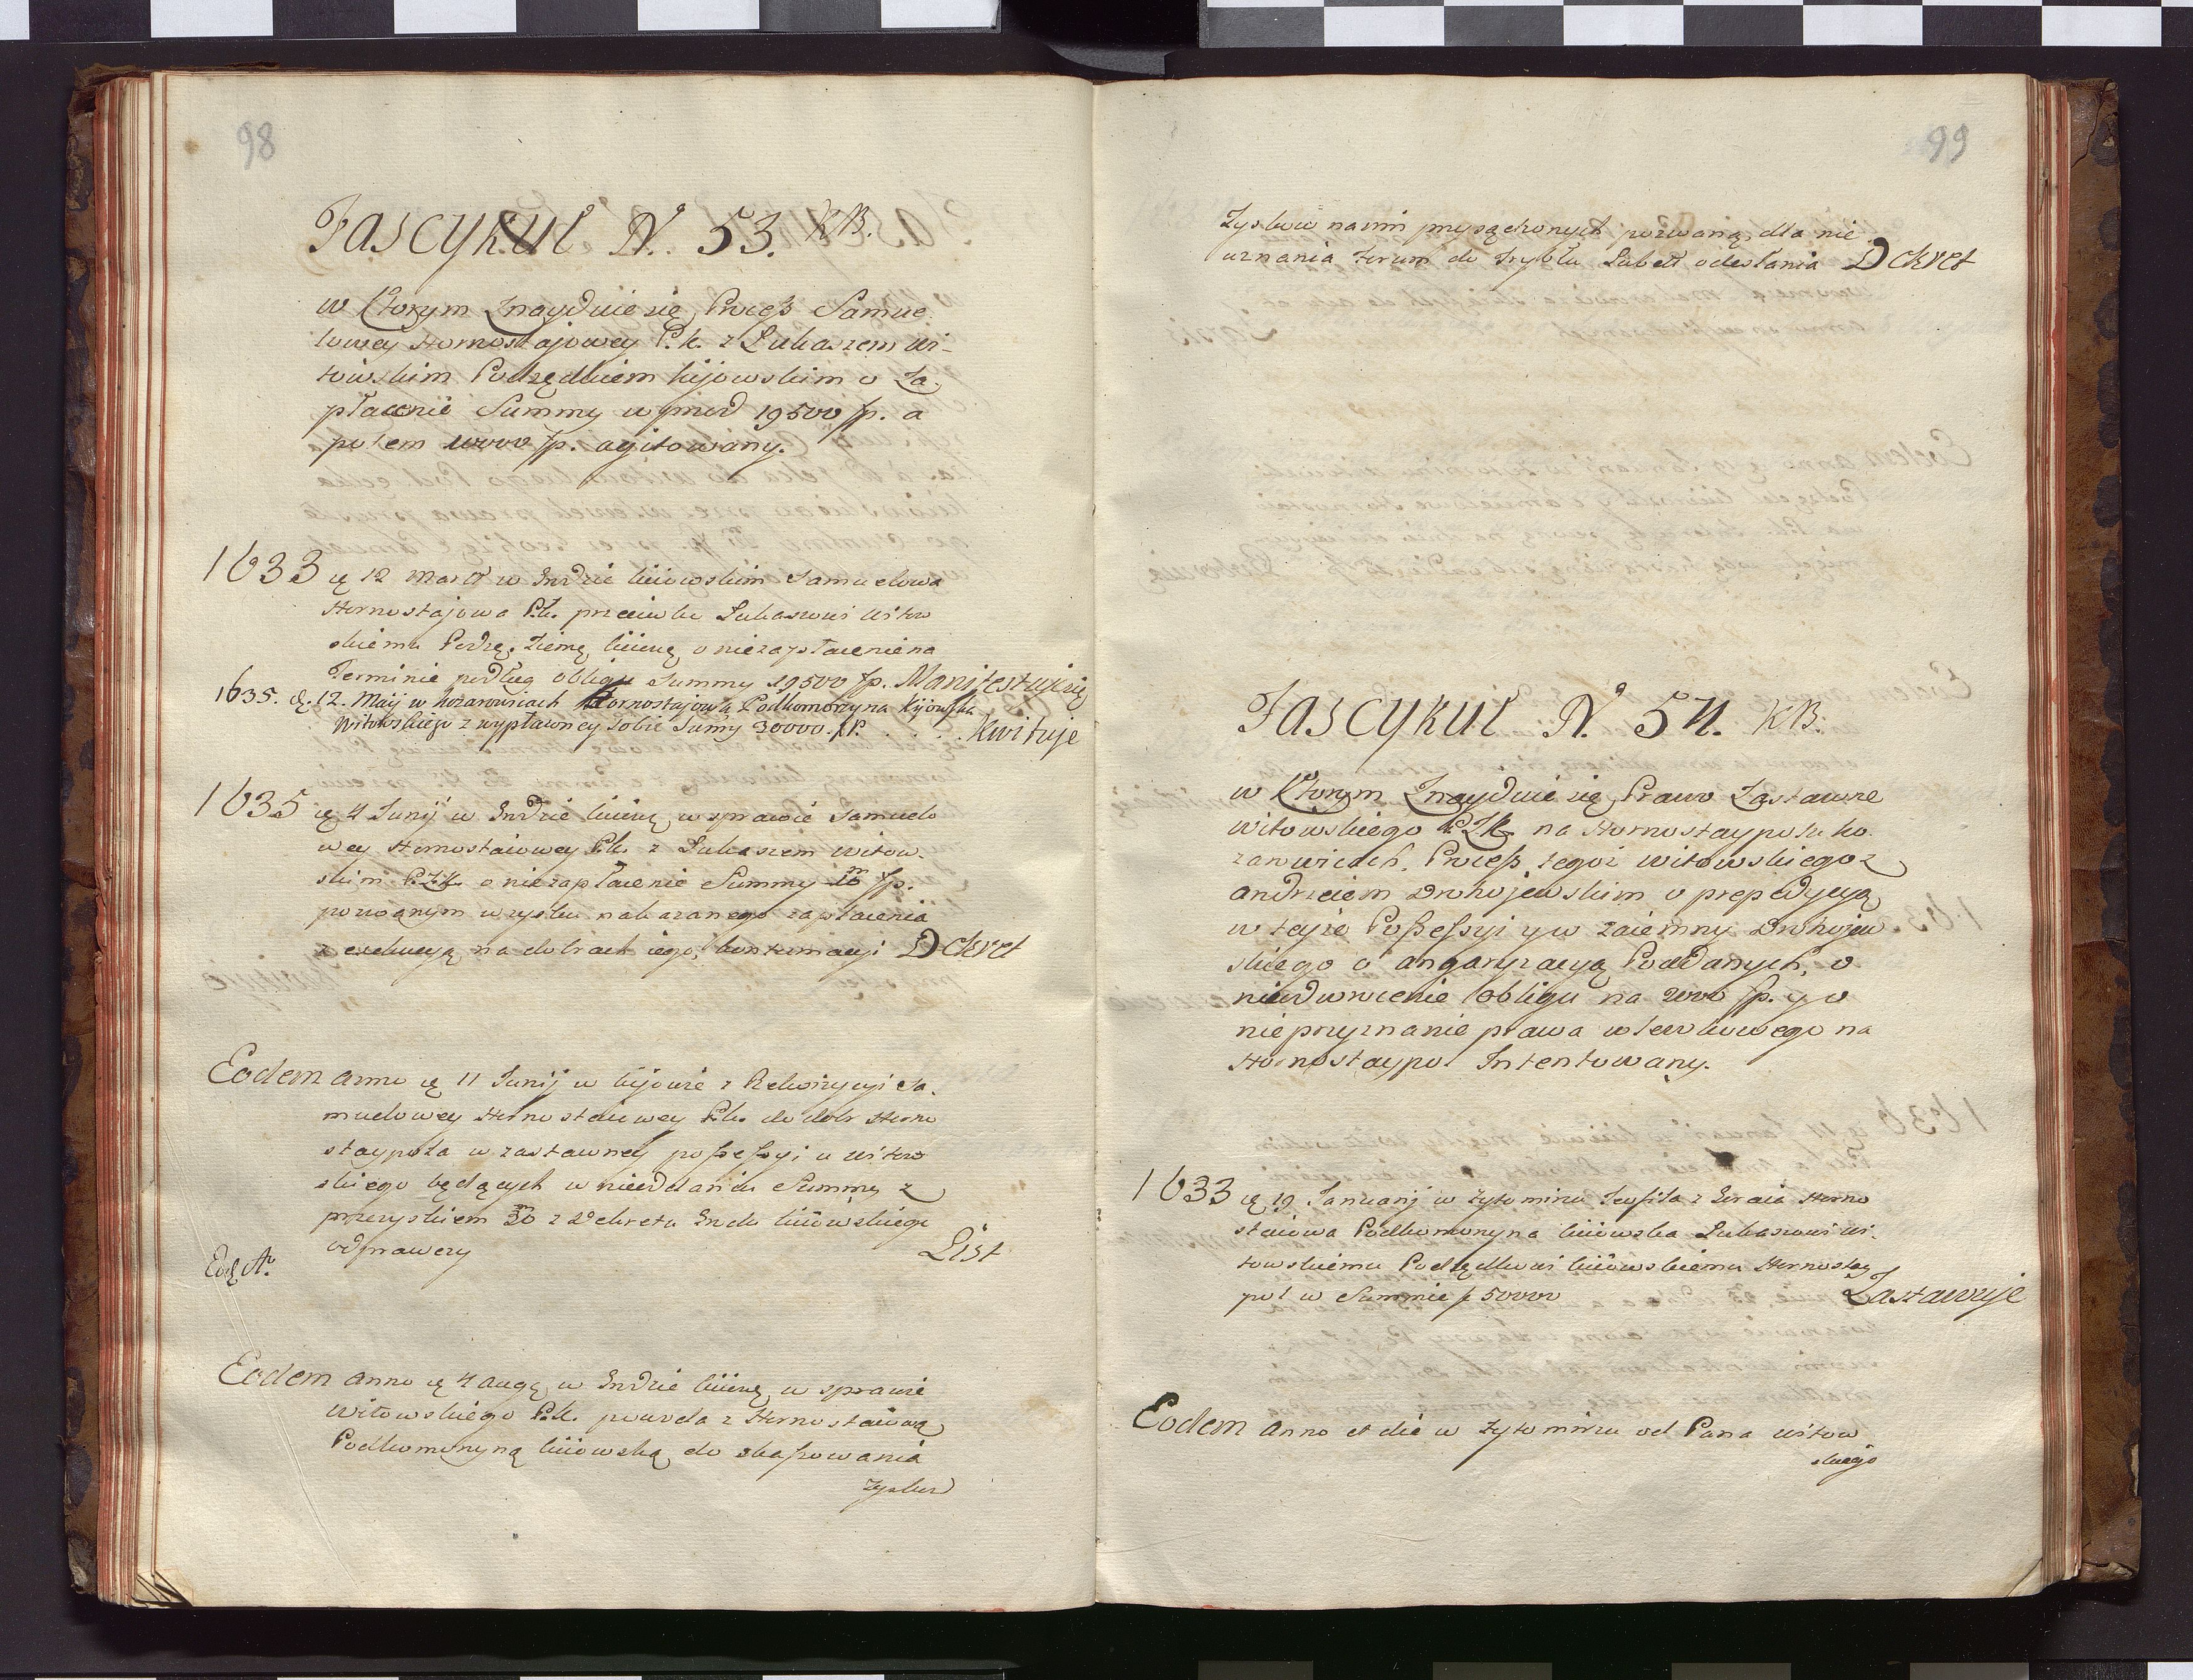 98
Fascykuł N. 53. KB.
w Ktorym Znayduie się Process Samue
lowey Hornostajowey P.k. z Łukaszem Wi-
towskim Podsędkiem kijowskim o Za
płacenie Summy w przod 19500 fp. a
potem 10000 fp. agitowany.
1633 ę 12 Marti w Grodzie kiiowskim Samuelowa
Hornostajowa P.k. przeciwko Łukaszowi Witow
skiemu Podsę. Ziemę kiiowę o niezapłacenie na
Terminie podług obligu Summy 19500 fp. Manifestuje się
1635. ę. 12. Maij w kozarowicach Hornostajowa Podkomorzyna Kijowska
Witowskiego z wypłaconey Sobie Sumy 30000. fP. . . . Kwituje
1635 ę 4 Junij w Grodzie kiiowę w sprawie Samuelo
wey Hornostaiowey P.k. z Łukaszem Witow.
skim P.Z.K. o niezapłacenie Summy fp.
pozwanym w zysku nakazanego zapłacenia
z exekucyą na dobrach iego, kontumacyi Dekret
Eodem anno ę 11 Junij w kijowie z Rekwizycyi Sa.
muelowey Hornostaiowey P.k. do dobr Horno
staypola w zastawney possessyi u Witow
skiego będących w nieoddaniu Summy z
przezyskiem 30 z Dekretu Grodu kiiowskiego
odprawczy List
Eodę Aº.
Eodem anno ę 4 augę w Grodzie kiiowę w sprawie
Witowskiego P.k. powoda z Hornostaiową
Podkomorzyną kiiowską do skassowania
zyskow
99
Zyskow na nim przysądzonych pozwaną, dla nie
uznania Forum do Trybłu Lubełł odesłania Dekret
Fascykuł N. 54. KB.
w Ktorym Znayduie się Prawo Zastawne
Witowskiego P.Z.K. na Hornostaypolu ko.
zarowicach. Process tegoż Witowskiego z
Andrzeiem Drohojewskim o prepedycyą
w teyże Possessyi y w zaiemny Drohojew
skiego o angaryzacyą Poddanych, o
nieodwrocenie Obligu na 2000 fp. y o
nieprzyznanie prawa wlewkowego na
Hornostaypol Intentowany.
1633 ę 19 Januarij w Zytomirzu Teofila z Goraia Horno
staiowa Podkomorzyna kiiowska Łukaszowi Wi.
towskiemu Podsędkowi kiiowskiemu Hornostay
pol w Summie f 50000 Zastawuje
Eodem anno et die w Zytomirzu od Pana Witow
skiego